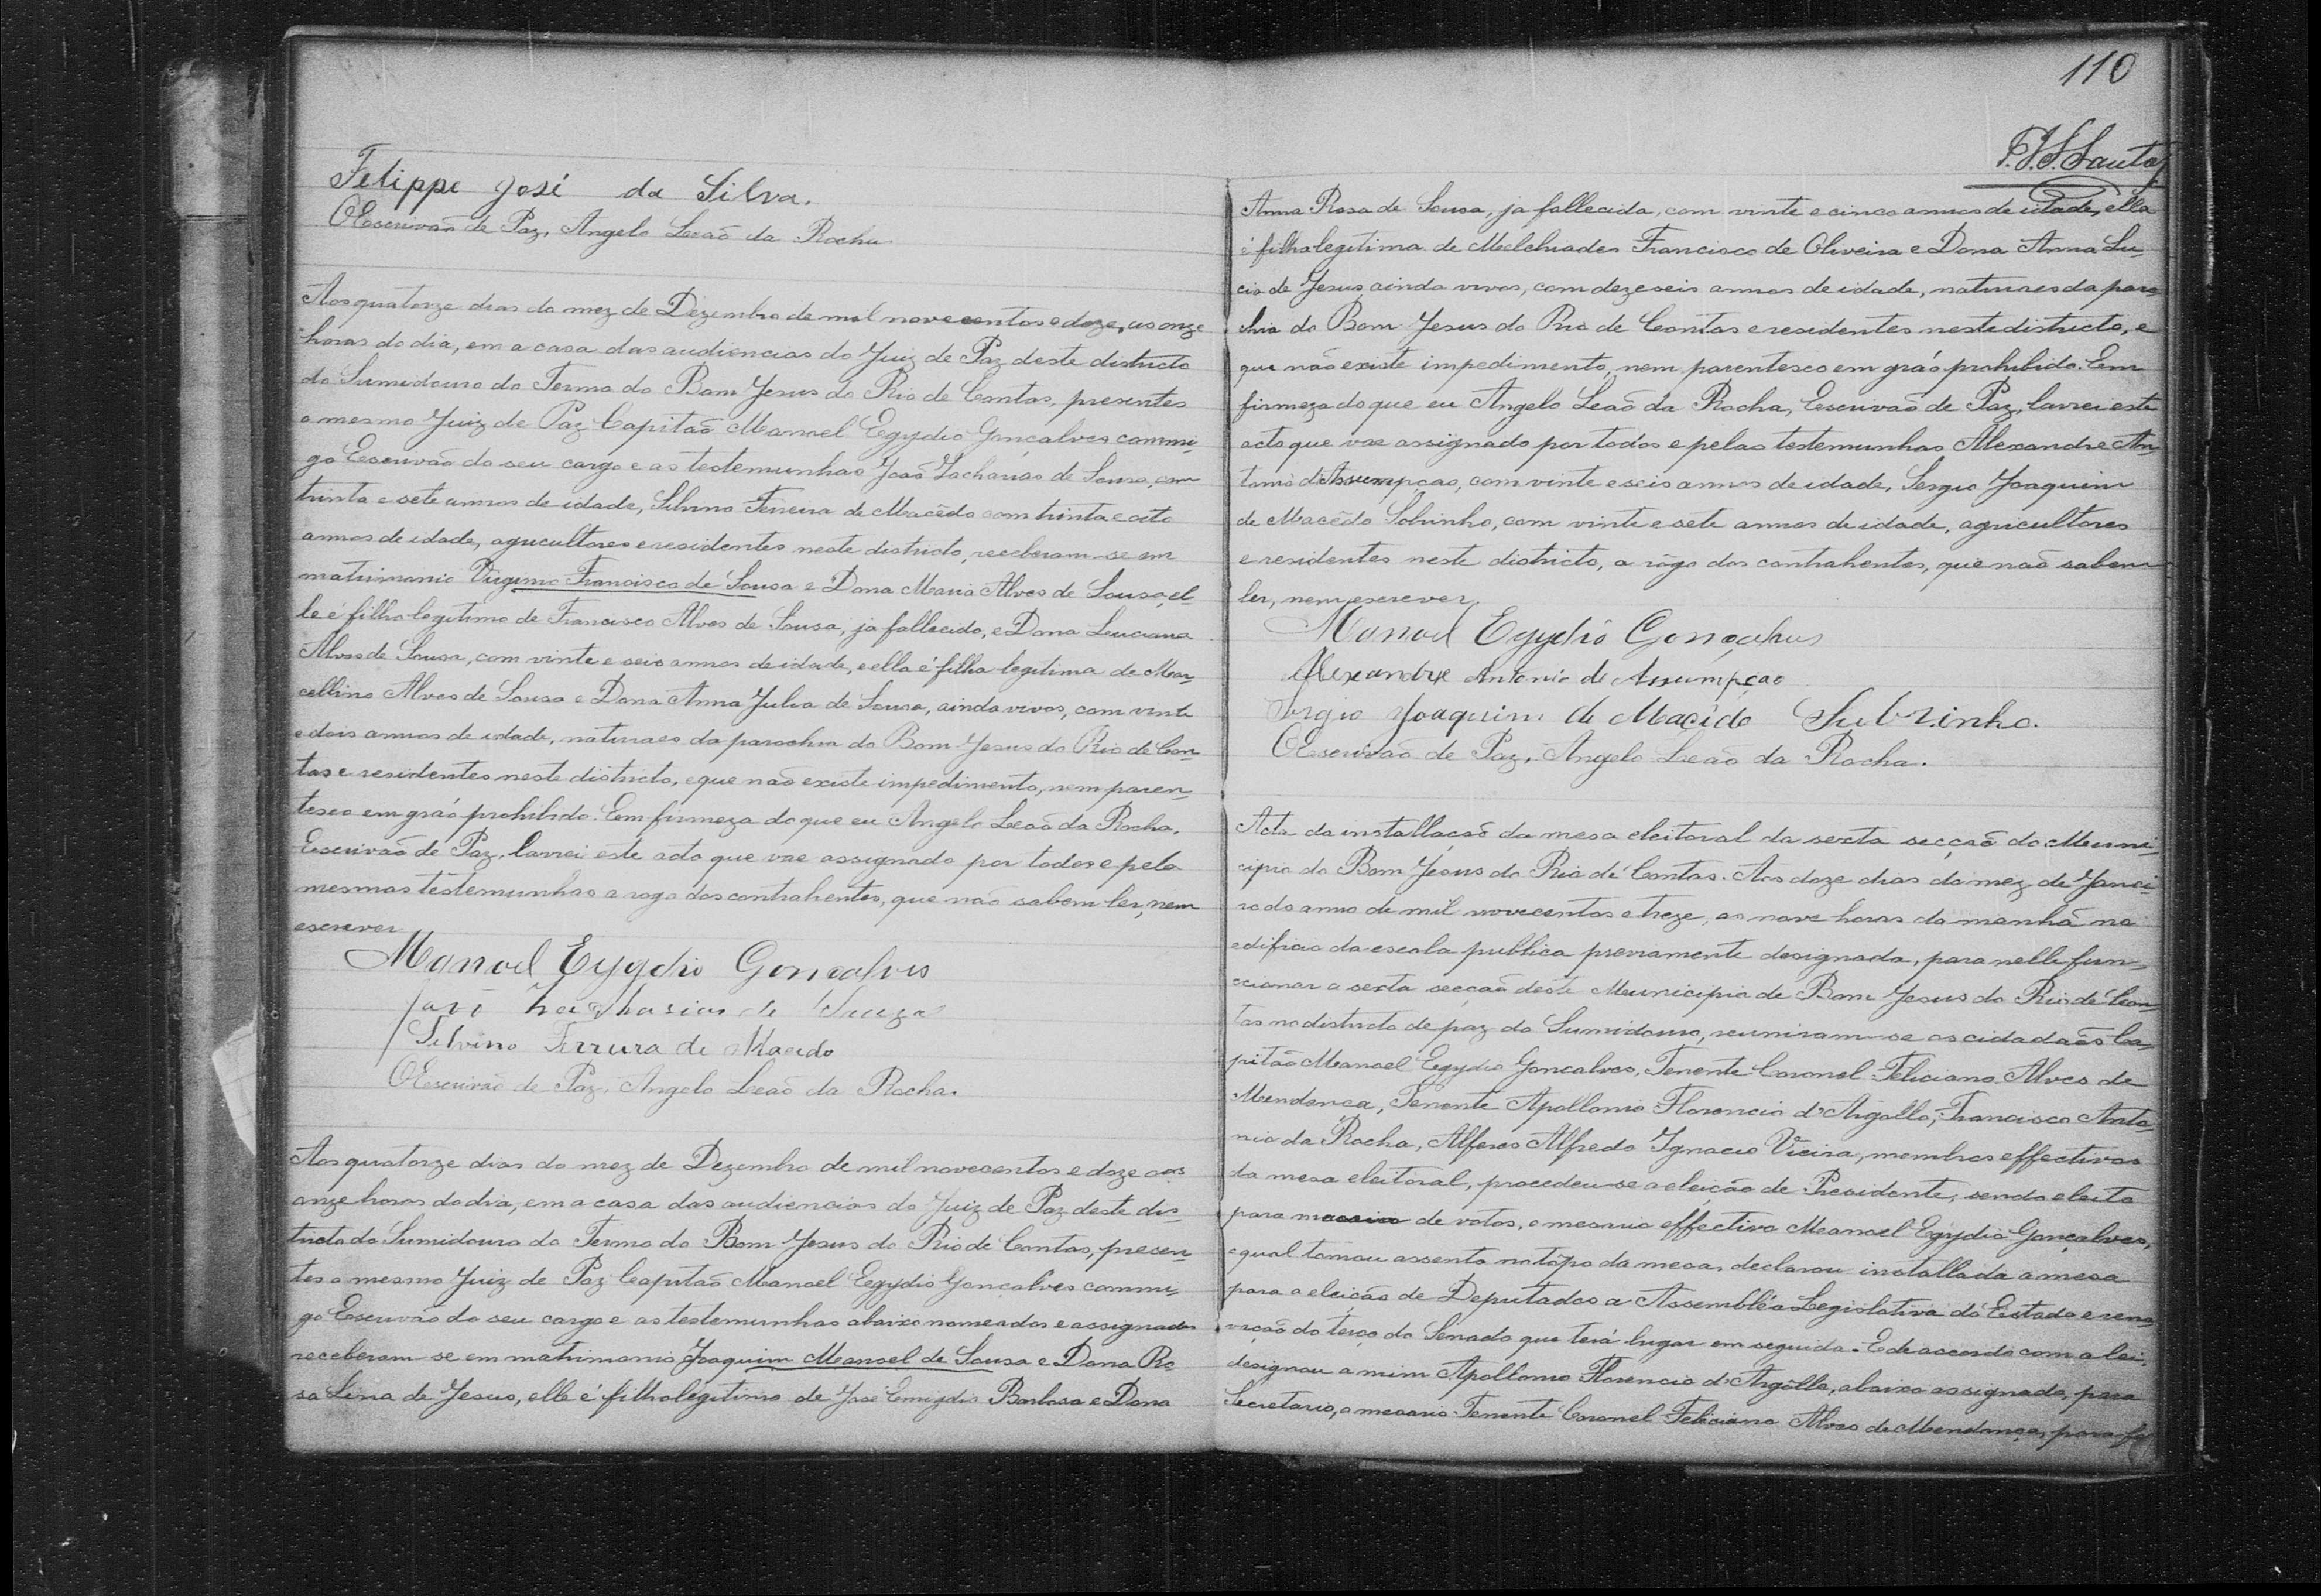 Felippe José da Silva.
O Escrivão de Paz, Angelo Leaõ da Rocha
Aos quatorze dias do mez de Dezembro de mil novecentos e doze, as onze
horas do dia, em a casa das audiencias do Juiz de Paz deste districto
do Sumidouro do Termo do Bom Jesus do Rio de Contas, presentes
o mesmo Juiz de Paz Capitaõ Manoel Egydio Gonçalves commi-
go Escrivaõ do seu cargo e as testemunhas João Zacharias de Sousa, com
trinta e sete annos de idade, Silvino Ferreira de Macêdo com trinta e oito
annos de idade, agricultores e residentes neste districto, receberam-se em
matrimonio Virginio Francisco de Sousa e Dona Maria Alves de Sousa, el-
le é filho legitimo de Francisco Alves de Sousa, ja fallecido, e Dona Luciana
Alves de Sousa, com vinte e seis annos de idade, e ella é filha legitima de Mar-
cellino Alves de Sousa e Dona Anna Julia de Sousa, ainda vivos, com vinte
e dois annos de idade, naturaes da parochia do Bom Jesus do Rio de Con-
tas e residentes neste districto, e que não existe impedimento, nem paren-
tesco em gráo prohibido. Em firmeza do que eu Angelo Leaõ da Rocha,
Escrivaõ de Paz, lavrei este acto que vae assignado por todos e pelas
mesmas testemunhas a rogo dos contrahentes, que não sabem ler, nem
escrever
Manoel Egydio Gonçalves
Zacharias de Souza
Silvino Ferreira de Macedo
O Escrivão de Paz, Angelo Leaõ da Rocha.
Aos quatorze dias do mez de Dezembro de mil novecentos e doze as
onze horas do dia, em a casa das audiencias do Juiz de Paz deste dis-
tricto do Sumidouro do Termo do Bom Jesus do Rio de Contas, presen-
tes o mesmo Juiz de Paz Capitaõ Manoel Egydio Gonçalves commi-
go Escrivão do seu cargo e as testemunhas abaixo nomeados e assignados
receberam-se em matrimonio Joaquim Manoel de Sousa e Dona Ro
sa Lina de Jesus, elle é filho legitimo de José Emigdio Barbosa e Dona
110
F.J.S. Santos
Anna Rosa de Sousa, ja fallecida, com vinte e cinco annos de idade, ella
é filha legitima de Melchiades Francisco de Oliveira e Dona Anna Lu-
cia de Jesus, ainda vivos, com dezeseis annos de idade, naturaes da paro-
chia do Bom Jesus do Rio de Contas e residentes neste districto, e
que não existe impedimento, nem parentesco em gráo prohibido. Em
firmeza do que eu Angelo Leaõ da Rocha, Escrivaõ de Paz, lavrei este
acto que vae assignado por todos e pelas testemunhas Alexandre An-
tonio d'Assumpçao, com vinte e seis annos de idade, Sergio Joaquim
de Macêdo Sobrinho, com vinte e sete annos de idade, agricultores
e residentes neste districto, a rôgo dos contrahentes, que naõ sabem
ler, nem escrever.
Manoel Egydio Gonçalves
Alexandre Antonio de Assumpçao
Sergio Joaquim de Macêdo Subrinho.
O Escrivaõ de Paz, Angelo Leaõ da Rocha.
Acta da installaçaõ da mesa eleitoral da sexta secçaõ do Muni-
cipio do Bom Jesus do Rio de Contas. Aos doze dias do mez de Janei-
ro do anno de mil novecentos e treze, as nove horas da manhã no
edificio da escola publica previamente designada, para nelle func-
cionar a sexta secçaõ deste Municipio de Bom Jesus do Rio de Con-
tas no districto de paz do Sumidouro, reuniram-se os cidadaõs Ca-
pitão Manoel Egydio Gonçalves, Tenente Coronel Feliciano Alves de
Mendonca, Tenente Apollonio Florencio d'Argollo, Francisco Anto-
nio da Rocha, Alferes Alfredo Ignacio Vieira, membros effectivos
da mesa eleitoral, procedeu-se a eleição de Presidente, sendo eleito
para de votos, o mesario effectivo Manoel Egydio Gonçalves,
o qual tomou assento no tôpo da mesa, declarou installada a mesa
para a eleição de Deputados a Assembléa Legislativa do Estado e reno-
vação do terço do Senado que terá lugar em seguida. E de accordo com a lei,
designou a mim Apollonio Florencio d'Argôllo, abaixo assignado, para
Secretario, o mesario Tenente Coronel Feliciano Alves de Mendonça, para